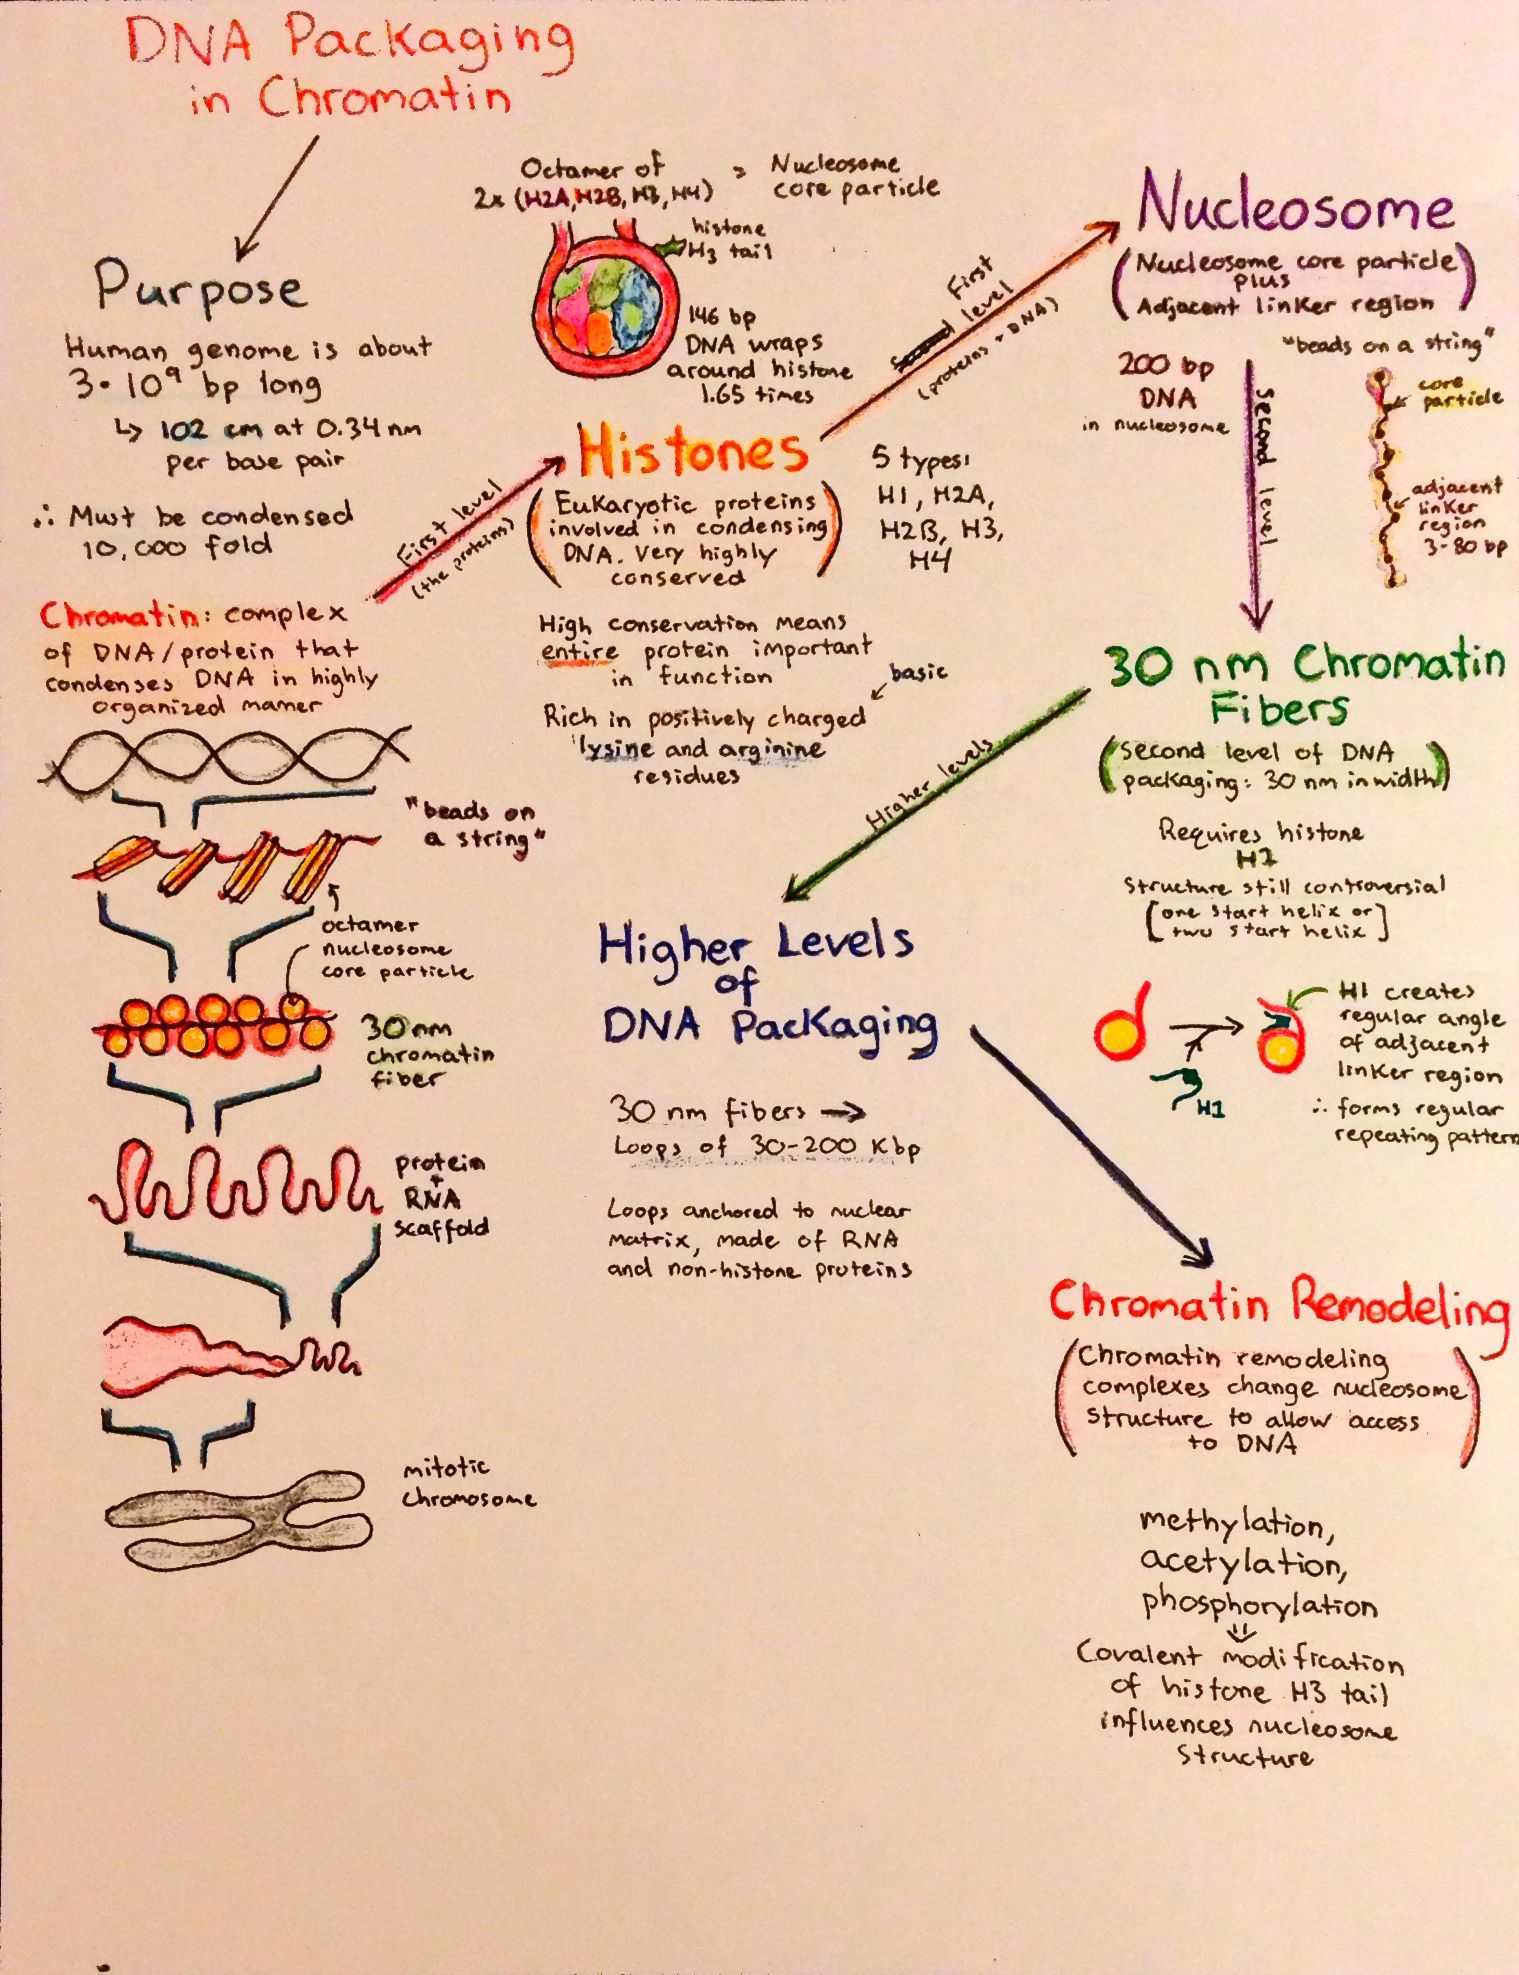 DNA Packaging
in Chromatin
Purpose
Human genome is about
3·10⁹ bp long
↳ 102 cm at 0.34 nm
per base pair
∴ Must be condensed
10,000 fold
Chromatin: complex
of DNA/protein that
condenses DNA in highly
organized manner
"beads on
a string"
octamer
nucleosome
core particle
30nm
chromatin
fiber
protein
+
RNA
scaffold
mitotic
chromosome
First level
(the proteins)
Octamer of
2x (H2A, H2B, H3, H4)
= Nucleosome
core particle
histone
H3 tail
146 bp
DNA wraps
around histone
1.65 times
Histones
(Eukaryotic proteins
involved in condensing
DNA. Very highly
conserved)
5 types:
H1, H2A,
H2B, H3,
H4
High conservation means
entire protein important
in function
basic
Rich in positively charged
lysine and arginine
residues
First
Second level
(proteins + DNA)
Nucleosome
(Nucleosome core particle
plus
Adjacent linker region)
"beads on a string"
200 bp
DNA
in nucleosome
Second level
core
particle
adjacent
linker
region
3-80 bp
30 nm Chromatin
Fibers
(second level of DNA
packaging: 30 nm in width)
Requires histone
H1
Structure still controversial
[one start helix or
two start helix]
H1
H1 creates
regular angle
of adjacent
linker region
∴ forms regular
repeating pattern
Higher levels
Higher Levels
of
DNA Packaging
30 nm fibers →
Loops of 30-200 Kbp
Loops anchored to nuclear
matrix, made of RNA
and non-histone proteins
Chromatin Remodeling
(Chromatin remodeling
complexes change nucleosome
structure to allow access
to DNA)
methylation,
acetylation,
phosphorylation
⇓
Covalent modification
of histone H3 tail
influences nucleosome
structure